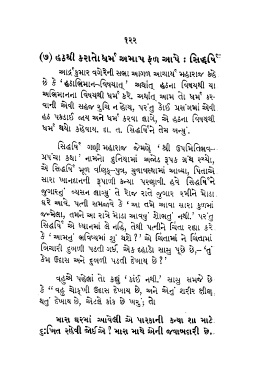 ૧૨૨
(૭) હઠથી કરાતો ધર્મ અમાપ ફળ આપે : સિદ્ધર્ષિ
આર્દ્રકુમાર વગેરેની સભા આગળ આચાર્ય મહારાજ કહે
છે કે 'હઠાભિમાન-વિષયાત્' અર્થાત્ હઠના વિષયથી યા
અભિમાનના વિષયથી ધર્મ કરે. અર્થાત્ આમ તો ધર્મ કર-
વાની એવી સહજ રુચિ ન હોય, પરંતુ કોઈ પ્રસંગમાં એવી
હઠ પકડાઈ જાય અને ધર્મ કરવા લાગે, એ હઠના વિષયથી
ધર્મ થયો કહેવાય. દા. ત. સિદ્ધર્ષિને તેમ બન્યું.
સિદ્ધર્ષિ ગણી મહારાજ જેમણે 'શ્રી ઉપમિતિભવ-
પ્રપંચા કથા' નામનો દુનિયામાં અજોડ રૂપક ગ્રંથ રચ્યો,
એ સિદ્ધર્ષિ મૂળ વણિક્-પુત્ર, યુવાવસ્થામાં આવ્યા, પિતાએ
સારા ખાનદાનની રૂપાળી કન્યા પરણાવી. હવે સિદ્ધર્ષિને
જુગારનું વ્યસન લાગ્યું તે રોજ રાતે જુગાર રમીને મોડા
ઘરે આવે. પત્ની સમજાવે કે 'આ તમે આવા સારા કુળમાં
જન્મેલા, તમને આ રાત્રે મોડા આવવું શોભતું નથી.' પરંતુ
સિદ્ધર્ષિ એ ધ્યાનમાં લે નહિ, તેથી પત્નીને ચિંતા રહ્યા કરે
કે 'આમનું ભવિષ્યમાં શું થશે ?' એ ચિંતામાં ને ચિંતામાં
બિચારી દુબળી પડતી ગઈ. એક દહાડો સાસુ પૂછે છે,- 'તું
કેમ ઉદાસ અને દુબળી પડતી દેખાય છે ?'
વહુએ પહેલાં તો કહ્યું 'કાંઈ નથી.' સાસુ સમજે છે
કે “વહુ ચોક્ખી ઉદાસ દેખાય છે, અને એનું શરીર ક્ષીણ
થતું દેખાય છે, એટલે કાંક છે ખરું; તો
મારા ઘરમાં આવેલી એ પારકાની કન્યા શા માટે
દુઃખિત રહેવી જોઈએ ? મારા માથે એની જવાબદારી છે.